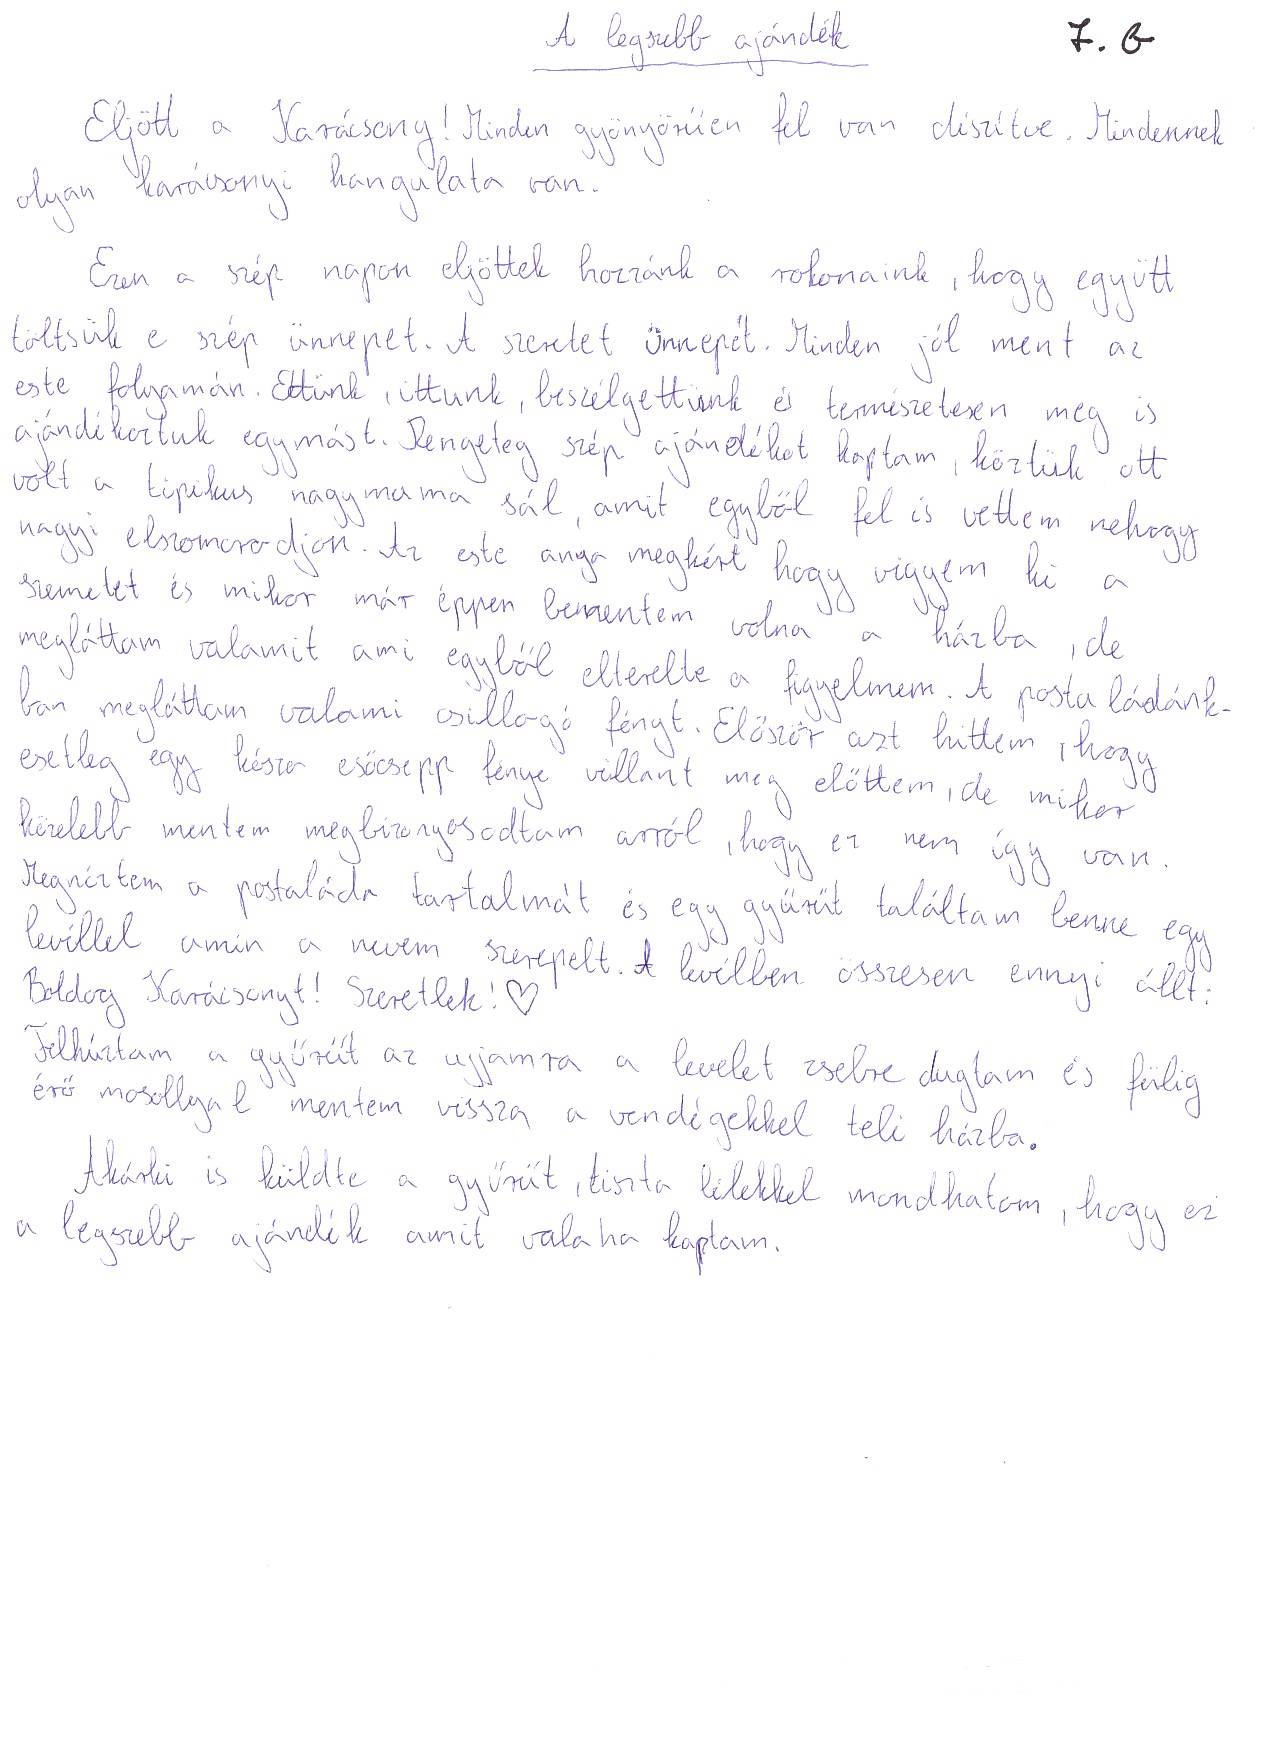 A legszebb ajándék 7. B
Eljött a Karácsony! Minden gyönyörűen fel van díszítve. Mindennek
olyan karácsonyi hangulata van.
Ezen a szép napon eljöttek hozzánk a rokonaink, hogy együtt
töltsük e szép ünnepet. A szeretet ünnepét. Minden jól ment az
este folyamán. Ettünk, ittunk, beszélgettünk és természetesen meg is
ajándékoztuk egymást. Rengeteg szép ajándékot kaptam, köztük ott
volt a tipikus nagymama sál, amit egyből fel is vettem nehogy
nagyi elszomorodjon. Az este anya megkért hogy vigyem ki a
szemetet és mikor már éppen bementem volna a házba, de
megláttam valamit ami egyből elterelte a figyelmem. A postaládánk-
ban megláttam valami csillogó fényt. Először azt hittem, hogy
esetleg egy kósza esőcsepp fénye villant meg előttem, de mikor
közelebb mentem megbizonyosodtam arról, hogy ez nem így van.
Megnéztem a postaláda tartalmát és egy gyűrűt találtam benne egy
levéllel amin a nevem szerepelt. A levélben összesen ennyi állt:
Boldog Karácsonyt! Szeretlek! ♡
Felhúztam a gyűrűt az ujjamra a levelet zsebre dugtam és fülig
érő mosollyal mentem vissza a vendégekkel teli házba.
Akárki is küldte a gyűrűt, tiszta lélekkel mondhatom, hogy ez
a legszebb ajándék amit valaha kaptam.